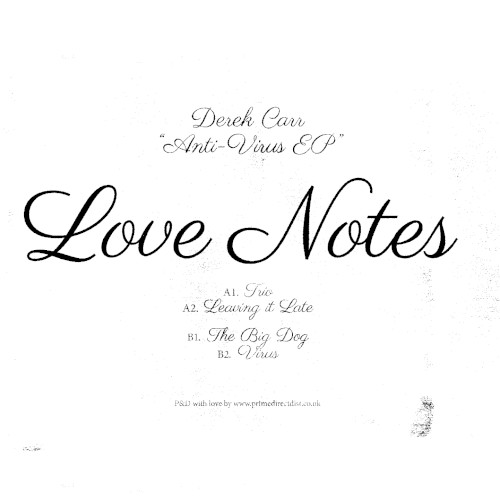 Derek Carr
"Anti-Virus EP"
Love Notes
A1. Trio
A2. Leaving it Late
B1. The Big Dog
B2. Virus
P&D with love by www.primedirectdist.co.uk